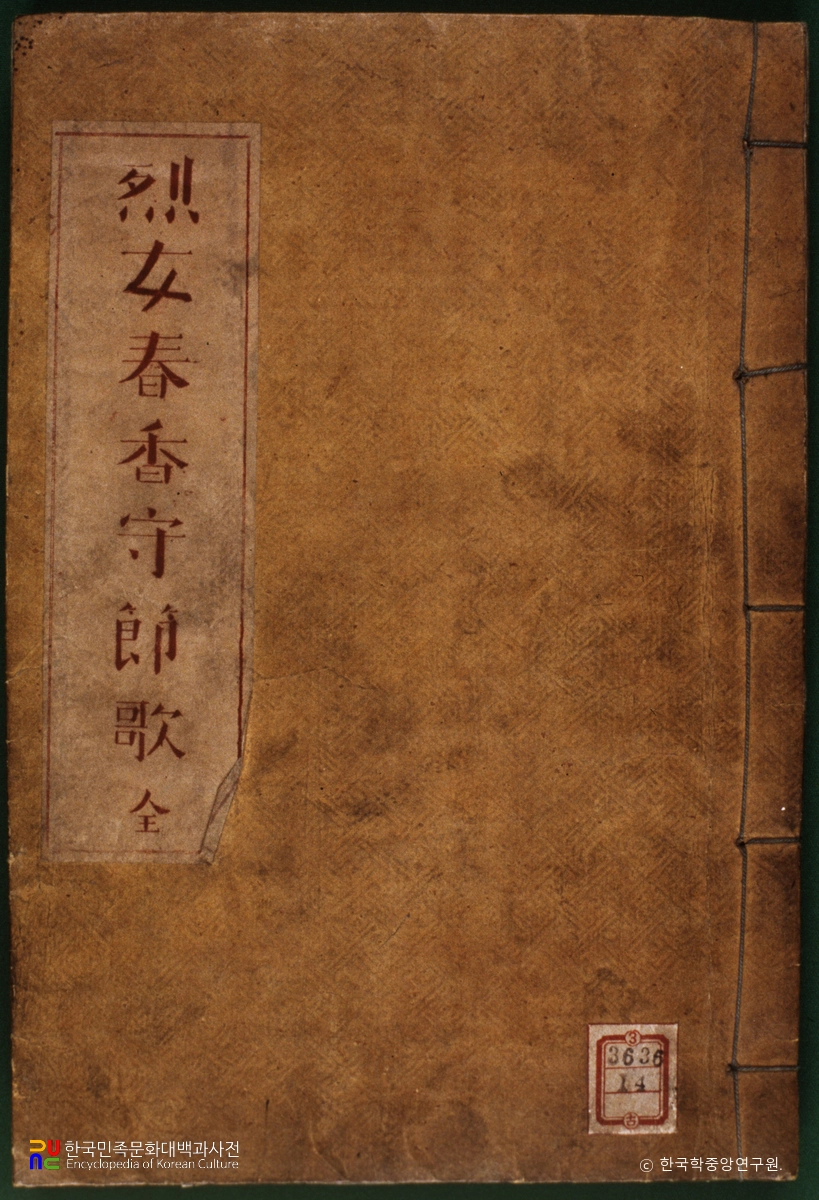 烈女春香守節歌 全
3
3636
14
古
한국민족문화대백과사전
Encyclopedia of Korean Culture
© 한국학중앙연구원.